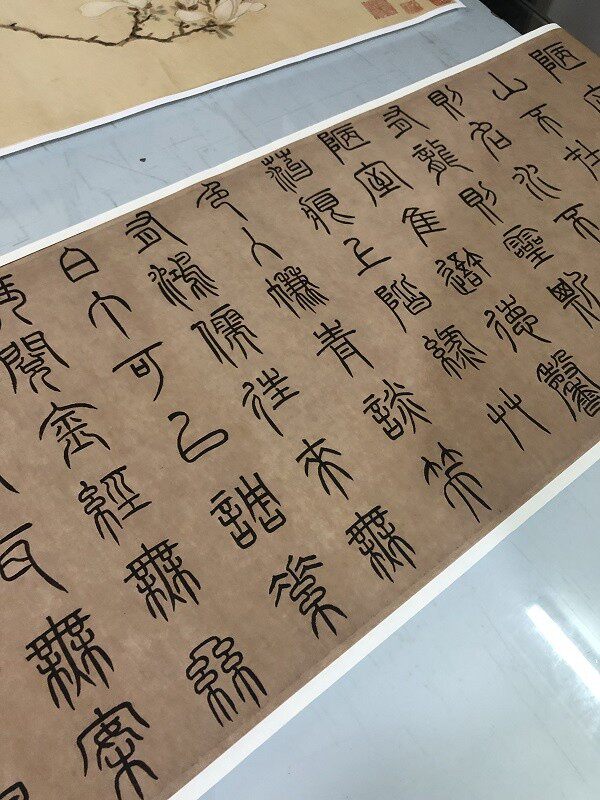 陋室
山不在
則名水不
有龍則靈斯
陋室惟吾德馨
苔痕上階綠艸
色入簾青談笑
有鴻儒往來無
白丁可以調素
琴閱金經無絲
耳無案